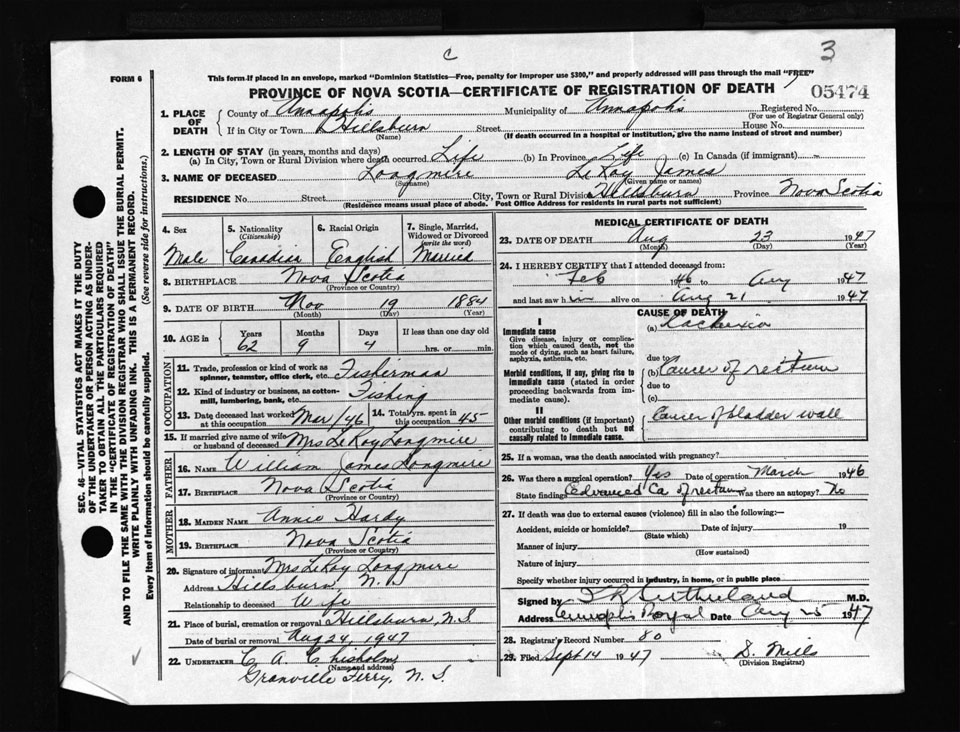 c
3
FORM 6
This form if placed in an envelope, marked "Dominion Statistics—Free, penalty for improper use $300," and properly addressed will pass through the mail "FREE"
PROVINCE OF NOVA SCOTIA—CERTIFICATE OF REGISTRATION OF DEATH
05474
SEC. 46—VITAL STATISTICS ACT MAKES IT THE DUTY
OF THE UNDERTAKER OR PERSON ACTING AS UNDER-
TAKER TO OBTAIN ALL THE PARTICULARS REQUIRED
IN THE "CERTIFICATE OF REGISTRATION OF DEATH"
AND TO FILE THE SAME WITH THE DIVISION REGISTRAR WHO SHALL ISSUE THE BURIAL PERMIT.
WRITE PLAINLY WITH UNFADING INK. THIS IS A PERMANENT RECORD.
Every item of information should be carefully supplied. (See reverse side for instructions.)
1. PLACE OF DEATH County of Annapolis Municipality of Annapolis Registered No.
(For use of Registrar General only)
If in City or Town Hillsburn Street House No.
(Name) (If death occurred in a hospital or institution, give the name instead of street and number)
2. LENGTH OF STAY (in years, months and days)
(a) In City, Town or Rural Division where death occurred Life (b) In Province Life (c) In Canada (if immigrant) -
3. NAME OF DECEASED Longmire LeRoy James
(Surname) (Given name or names)
RESIDENCE No. Street City, Town or Rural Division Hillsburn Province Nova Scotia
(Residence means usual place of abode. Post Office Address for residents in rural parts not sufficient)
4. Sex 5. Nationality 6. Racial Origin 7. Single, Married,
(Citizenship) Widowed or Divorced
(write the word)
Male Canadian English Married
8. BIRTHPLACE Nova Scotia
(Province or Country)
9. DATE OF BIRTH Nov 19 1884
(Month) (Day) (Year)
10. AGE in Years Months Days If less than one day old
62 9 4 hrs. or min.
OCCUPATION
11. Trade, profession or kind of work as Fisherman
spinner, teamster, office clerk, etc.
12. Kind of industry or business, as cotton- Fishing
mill, lumbering, bank, etc.
13. Date deceased last worked Mar/46 14. Total yrs. spent in 45
at this occupation this occupation
15. If married give name of wife Mrs LeRoy Longmire
or husband of deceased
FATHER
16. NAME William James Longmire
17. BIRTHPLACE Nova Scotia
(Province or Country)
MOTHER
18. MAIDEN NAME Annie Hardy
19. BIRTHPLACE Nova Scotia
(Province or Country)
20. Signature of informant Mrs LeRoy Longmire
Address Hillsburn, N. S
Relationship to deceased Wife
21. Place of burial, cremation or removal Hillsburn, N.S
Date of burial or removal Aug 24, 1947
22. UNDERTAKER C. A. Chisholm
(Name and address)
Granville Ferry, N. S.
MEDICAL CERTIFICATE OF DEATH
23. DATE OF DEATH Aug 23 1947
(Month) (Day) (Year)
24. I HEREBY CERTIFY that I attended deceased from:
Feb 1946 to Aug 1947
and last saw him alive on Aug 21 1947
CAUSE OF DEATH
I
Immediate cause (a) Cachexia
Give disease, injury or complica-
tion which caused death, not the
mode of dying, such as heart failure,
asphyxia, asthenia, etc.
due to
Morbid conditions, if any, giving rise to (b) Cancer of rectum
immediate cause (stated in order due to
proceeding backwards from im-
mediate cause). (c)
II
Other morbid conditions (if important) Cancer of bladder wall
contributing to death but not
causally related to immediate cause.
25. If a woman, was the death associated with pregnancy?
26. Was there a surgical operation? Yes Date of operation March 1946
State findings Advanced Ca of rectum Was there an autopsy? No
27. If death was due to external causes (violence) fill in also the following:—
Accident, suicide or homicide? Date of injury 19
(State which)
Manner of injury
(How sustained)
Nature of injury
Specify whether injury occurred in industry, in home, or in public place
Signed by Sutherland M.D.
Address Annapolis Royal Date Aug 25 1947
28. Registrar's Record Number 80
29. Filed Sept 14 1947 S. Mills
(Division Registrar)